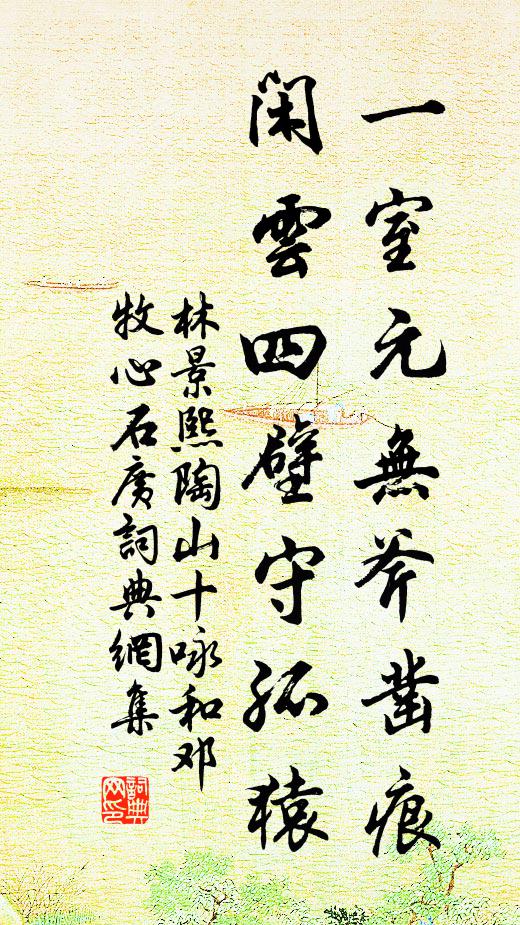 一室元無斧凿痕
閑雲四壁守孤猿
林景熙陶山十咏和邓
牧心石廣詞典網集
詞典
网印